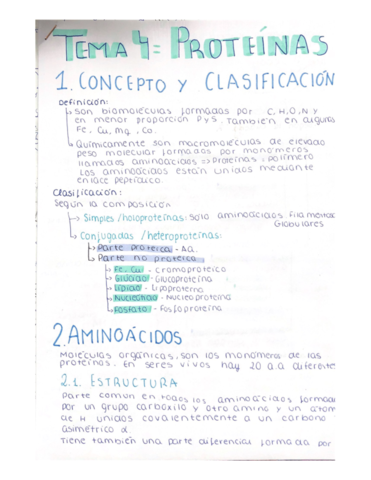 TEMA 4: PROTEÍNAS
1. CONCEPTO Y CLASIFICACIÓN
Definición:
↳ Son biomoléculas formadas por C, H, O, N y
en menor proporción P y S. También en algunas
Fe, Cu, Mg, Co.
↳ Químicamente son macromoléculas de elevado
peso molecular formados por monómeros
llamados aminoácidos => Proteínas: polímero
Los aminoácidos están unidos mediante
enlace peptídico.
Clasificación:
Según la composición
↳ Simples/holoproteínas: Solo aminoácidos Filamentosa
Globulares
↳ Conjugadas/heteroproteínas:
↳ Parte proteica - Aa.
↳ Parte no proteica
↳ Fe, Cu - cromoproteica
↳ Glúcido - Glucoproteína
↳ Lípido - Lipoproteína
↳ Nucleótido - Nucleoproteína
↳ Fosfato - Fosfoproteína
2. AMINOÁCIDOS
Moléculas orgánicas, son los monómeros de las
proteínas. En seres vivos hay 20 a.a diferente
2.1. ESTRUCTURA
Parte común en todos los aminoácidos formada
por un grupo carboxilo y otro amino y un átom
de H unidos covalentemente a un carbono
asimétrico α.
Tiene también una parte diferencial formada por: